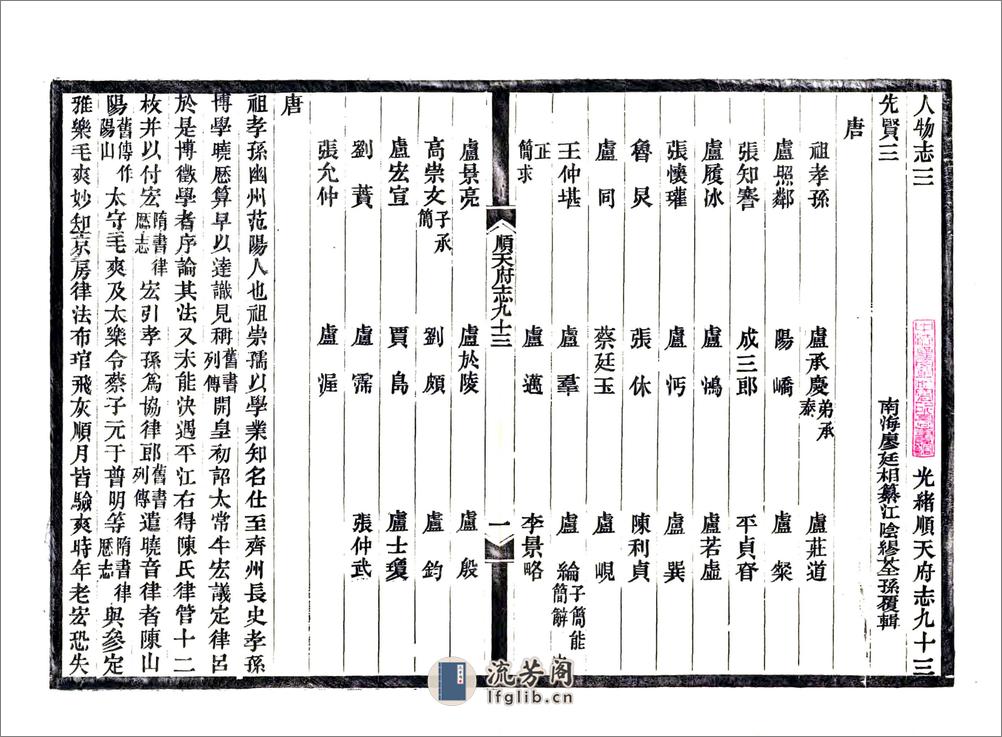 人物志三　光緒順天府志九十三
先賢三　南海廖廷相纂江陰繆荃孫覆輯
唐
祖孝孫　盧承慶弟承泰　盧莊道
盧照鄰　陽嶠　盧粲
張知謇　成三郎　平貞眘
盧履冰　盧鴻　盧若虛
張懷瓘　盧沔　盧巽
魯炅　張休　陳利貞
盧同　蔡廷玉　盧峴
王仲堪　盧羣　盧綸子簡能 簡辭
正 簡求　盧邁　李景略
順天府志九十三　一
盧景亮　盧於陵　盧殷
高崇文子承簡　劉頗　盧鈞
盧宏宣　賈島　盧士瓊
劉蕡　盧霈　張仲武
張允仲　盧渥
唐
祖孝孫幽州范陽人也祖崇孺以學業知名仕至齊州長史孝孫
博學曉厯算早以達識見稱舊書列傳開皇初詔太常牛宏議定律呂
於是博徵學者序論其法又未能決遇平江右得陳氏律管十二
枚并以付宏隋書律厯志宏引孝孫爲協律郎舊書列傳遣曉音律者陳山
陽舊傳作陽山太守毛爽及太樂令蔡子元于普明等隋書律厯志與參定
雅樂毛爽妙知京房律法布琯飛灰順月皆驗爽時年老宏恐失
流芳阁
lfglib.cn